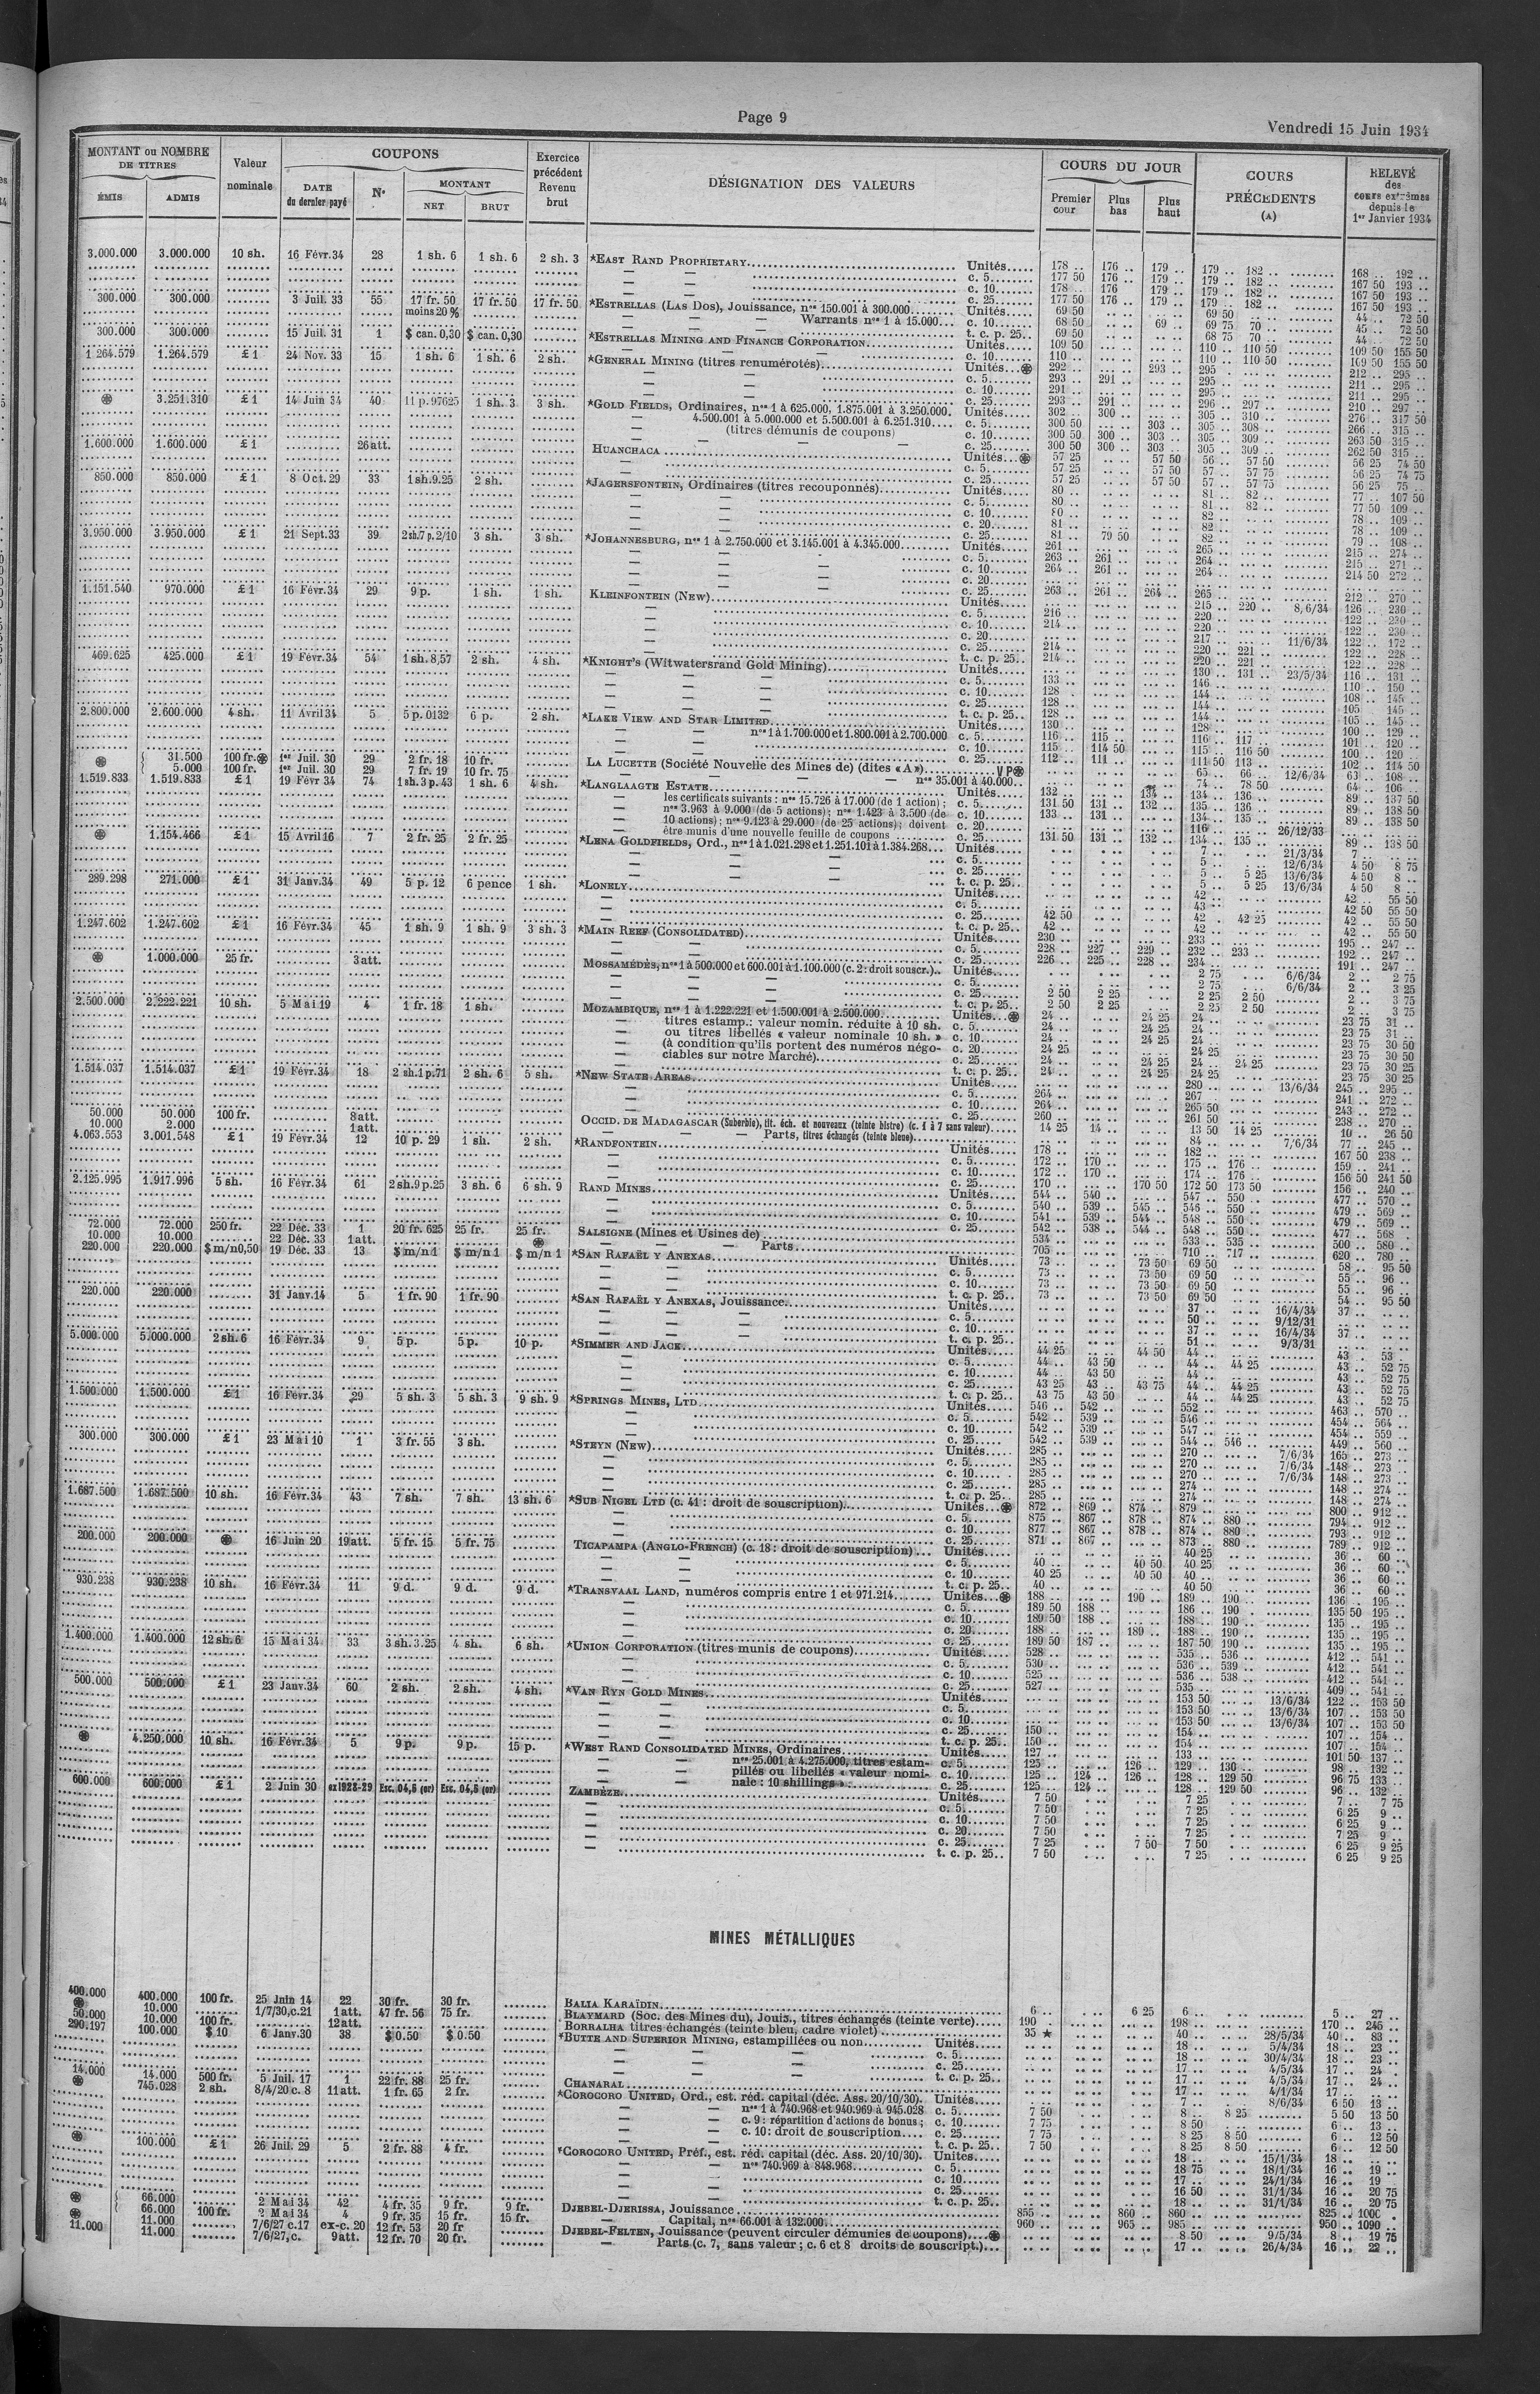 Page 9
Vendredi 15 Juin 1934
MONTANT ou NOMBRE DE TITRES
ÉMIS
ADMIS
Valeur nominale
COUPONS
DATE du dernier payé
N°
MONTANT
NET
BRUT
Exercice précédent Revenu brut
DÉSIGNATION DES VALEURS
COURS DU JOUR
Premier cour
Plus bas
Plus haut
COURS PRÉCÉDENTS (A)
RELEVÉ des cours extrêmes depuis le 1er Janvier 1934
3.000.000 3.000.000 10 sh. 16 Févr.34 28 1 sh. 6 1 sh. 6 2 sh. 3 *EAST RAND PROPRIETARY Unités 178 .. 176 .. 179 .. 179 .. 182 .. 168 .. 192 ..
c. 5 177 50 176 .. 179 .. 179 .. 182 .. 167 50 193 ..
c. 10 178 .. 176 .. 179 .. 179 .. 182 .. 167 50 193 ..
c. 25 177 50 176 .. 179 .. 179 .. 182 .. 167 50 193 ..
300.000 300.000 3 Juil. 33 55 17 fr. 50 17 fr. 50 17 fr. 50 *ESTRELLAS (LAS DOS), Jouissance, nos 150.001 à 300.000 Unités 69 50 69 50 44 .. 72 50
moins 20 % — — Warrants nos 1 à 15.000 c. 10 68 50 69 .. 69 75 70 .. 45 .. 72 50
t. c. p. 25 69 50 68 75 70 .. 44 .. 72 50
300.000 300.000 15 Juil. 31 1 $ can. 0,30 $ can. 0,30 *ESTRELLAS MINING AND FINANCE CORPORATION Unités 109 50 110 .. 110 50 109 50 155 50
c. 10 110 .. 110 .. 110 50 109 50 155 50
1 264.579 1.264.579 £ 1 24 Nov. 33 15 1 sh. 6 1 sh. 6 2 sh. *GENERAL MINING (titres renumérotés) Unités 292 .. 293 .. 295 .. 212 .. 295 ..
c. 5 293 .. 291 .. 295 .. 211 .. 295 ..
c. 10 291 .. 295 .. 211 .. 295 ..
c. 25 293 .. 291 .. 296 .. 297 .. 210 .. 297 ..
3.251.310 £ 1 14 Juin 34 40 11 p. 97625 1 sh. 3 3 sh. *GOLD FIELDS, Ordinaires, nos 1 à 625.000, 1.875.001 à 3.250.000. Unités 302 .. 300 .. 305 .. 310 .. 276 .. 317 50
4.500.001 à 5.000.000 et 5.500.001 à 6.251.310 c. 5 300 50 303 .. 305 .. 308 .. 266 .. 315 ..
(titres démunis de coupons) c. 10 300 50 300 .. 303 .. 305 .. 309 .. 263 50 315 ..
c. 25 300 50 300 .. 303 .. 305 .. 309 .. 262 50 315 ..
1.600.000 1.600.000 £ 1 26 att. HUANCHACA Unités 57 25 57 50 56 .. 57 50 56 25 74 50
c. 5 57 25 57 50 57 .. 57 75 56 25 74 75
c. 25 57 25 57 50 57 .. 57 75 56 25 75 ..
850.000 850.000 £ 1 8 Oct. 29 33 1sh.9.25 2 sh. *JAGERSFONTEIN, Ordinaires (titres recouponnés) Unités 80 .. 81 .. 82 .. 77 .. 107 50
c. 5 80 .. 81 .. 82 .. 77 50 109 ..
c. 10 80 .. 82 .. 78 .. 109 ..
c. 20 81 .. 82 .. 78 .. 109 ..
c. 25 81 .. 79 50 82 .. 79 .. 108 ..
3.950.000 3.950.000 £ 1 21 Sept.33 39 2sh.7 p.2/10 3 sh. 3 sh. *JOHANNESBURG, nos 1 à 2.750.000 et 3.145.001 à 4.345.000 Unités 261 .. 265 .. 215 .. 274 ..
c. 5 263 .. 261 .. 264 .. 215 .. 271 ..
c. 10 264 .. 261 .. 264 .. 214 50 272 ..
c. 20
c. 25 263 .. 261 .. 264 .. 265 .. 212 .. 270 ..
1.151.540 970.000 £ 1 16 Févr.34 29 9 p. 1 sh. 1 sh. KLEINFONTEIN (NEW) Unités 215 .. 220 .. 8/6/34 126 .. 230 ..
c. 5 216 .. 220 .. 122 .. 230 ..
c. 10 214 .. 220 .. 122 .. 230 ..
c. 20 217 .. 11/6/34 122 .. 172 ..
c. 25 214 .. 220 .. 221 .. 122 .. 228 ..
t. c. p. 25 214 .. 220 .. 221 .. 122 .. 228 ..
469.625 425.000 £ 1 19 Févr.34 54 1sh.8,57 2 sh. 4 sh. *KNIGHT'S (Witwatersrand Gold Mining) Unités 130 .. 131 .. 23/5/34 116 .. 131 ..
c. 5 133 .. 146 .. 110 .. 150 ..
c. 10 128 .. 144 .. 108 .. 145 ..
c. 25 128 .. 144 .. 105 .. 145 ..
t. c. p. 25 128 .. 144 .. 105 .. 145 ..
2.800.000 2.600.000 4 sh. 11 Avril 34 5 5 p. 0132 6 p. 2 sh. *LAKE VIEW AND STAR LIMITED 130 .. 128 .. 100 .. 129 ..
nos 1 à 1.700.000 et 1.800.001 à 2.700.000 c. 5 116 .. 115 .. 116 .. 117 .. 101 .. 120 ..
c. 10 115 .. 114 50 115 .. 116 50 100 .. 120 ..
c. 25 112 .. 111 .. 111 50 113 .. 102 .. 114 50
31.500 100 fr. 1er Juil. 30 29 2 fr. 18 10 fr. LA LUCETTE (Société Nouvelle des Mines de) (dites « A ») VP 65 .. 66 .. 12/6/34 63 .. 108 ..
5.000 100 fr. 1er Juil. 30 29 7 fr. 19 10 fr. 75 — nos 35.001 à 40.000 74 .. 78 50 64 .. 106 ..
1.519.833 1.519.833 £ 1 19 Févr 34 74 1sh.3 p.43 1 sh. 6 4 sh. *LANGLAAGTE ESTATE Unités 132 .. 134 .. 134 .. 136 .. 89 .. 137 50
les certificats suivants : nos 15.726 à 17.000 (de 1 action) ; c. 5 131 50 131 .. 132 .. 135 .. 136 .. 89 .. 138 50
nos 3.963 à 9.000 (de 5 actions) ; nos 1.423 à 3.500 (de c. 10 133 .. 131 .. 134 .. 135 .. 89 .. 138 50
10 actions) ; nos 9.123 à 29.000 (de 25 actions) ; doivent c. 20 116 .. 26/12/33
être munis d'une nouvelle feuille de coupons c. 25 131 50 131 .. 132 .. 134 .. 135 .. 89 .. 138 50
1.154.466 £ 1 15 Avril 16 7 2 fr. 25 2 fr. 25 *LENA GOLDFIELDS, Ord., nos 1 à 1.021.298 et 1.251.101 à 1.384.268 Unités 7 .. 21/3/34 7 ..
c. 5 5 .. 12/6/34 4 50 8 75
c. 25 5 .. 5 25 13/6/34 4 50 8 ..
t. c. p. 25 5 .. 5 25 13/6/34 4 50 8 ..
289.298 271.000 £ 1 31 Janv.34 49 5 p. 12 6 pence 1 sh. *LONELY Unités 42 .. 42 .. 55 50
c. 5 43 .. 42 50 55 50
c. 25 42 50 42 .. 42 25 42 .. 55 50
t. c. p. 25 42 .. 42 .. 42 .. 55 50
1.247.602 1.247.602 £ 1 16 Févr.34 45 1 sh. 9 1 sh. 9 3 sh. 3 *MAIN REEF (CONSOLIDATED) Unités 230 .. 233 .. 195 .. 247 ..
c. 5 228 .. 227 .. 229 .. 232 .. 233 .. 192 .. 247 ..
c. 25 226 .. 225 .. 228 .. 234 .. 191 .. 247 ..
1.000.000 25 fr. 3 att. MOSSAMÉDÈS, nos 1 à 500.000 et 600.001 à 1.100.000 (c. 2: droit souscr.) Unités 2 75 6/6/34 2 .. 2 75
c. 5 2 75 6/6/34 2 .. 3 25
c. 25 2 50 2 25 2 25 2 50 2 .. 3 75
t. c. p. 25 2 50 2 25 2 25 2 50 2 .. 3 75
2.500.000 2.222.221 10 sh. 5 Mai 19 4 1 fr. 18 1 sh. MOZAMBIQUE, nos 1 à 1.222.221 et 1.500.001 à 2.500.000 Unités 24 .. 24 25 24 .. 23 75 31 ..
titres estamp.: valeur nomin. réduite à 10 sh. c. 5 24 .. 24 25 24 .. 23 75 31 ..
ou titres libellés « valeur nominale 10 sh. » c. 10 24 .. 24 25 24 .. 23 75 30 50
(à condition qu'ils portent des numéros négo- c. 20 24 25 24 25 23 75 30 50
ciables sur notre Marché) c. 25 24 .. 24 25 24 .. 24 25 23 75 30 25
t. c. p. 25 24 .. 24 25 24 25 23 75 30 25
1.514.037 1.514.037 £ 1 19 Févr.34 18 2 sh.1p.71 2 sh. 6 5 sh. *NEW STATE AREAS Unités 280 .. 13/6/34 245 .. 295 ..
c. 5 264 .. 267 .. 241 .. 272 ..
c. 10 264 .. 265 50 243 .. 272 ..
c. 25 260 .. 261 50 238 .. 270 ..
50.000 50.000 100 fr. 8 att. OCCID. DE MADAGASCAR (Suberbie), tit. éch. et nouveaux (teinte bistre) (c. 1 à 7 sans valeur) 14 25 14 .. 13 50 14 25 10 .. 26 50
10.000 2.000 1 att. — — Parts, titres échangés (teinte bleue) 84 .. 7/6/34 77 .. 245 ..
4.063.553 3.001.548 £ 1 19 Févr.34 12 10 p. 29 1 sh. 2 sh. *RANDFONTEIN Unités 178 .. 182 .. 167 50 238 ..
c. 5 172 .. 170 .. 175 .. 176 .. 159 .. 241 ..
c. 10 172 .. 170 .. 174 .. 176 .. 156 50 241 50
c. 25 170 .. 170 50 172 50 173 50 156 .. 240 ..
2.125.995 1.917.996 5 sh. 16 Févr.34 61 2sh.9p.25 3 sh. 6 6 sh. 9 RAND MINES Unités 544 .. 540 .. 547 .. 550 .. 477 .. 570 ..
c. 5 540 .. 539 .. 545 .. 546 .. 550 .. 479 .. 569 ..
c. 10 541 .. 539 .. 544 .. 548 .. 550 .. 479 .. 569 ..
c. 25 542 .. 538 .. 544 .. 548 .. 550 .. 477 .. 568 ..
72.000 72.000 250 fr. 22 Déc. 33 1 20 fr. 625 25 fr. 25 fr. SALSIGNE (Mines et Usines de) 534 .. 533 .. 535 .. 500 .. 580 ..
10.000 10.000 22 Déc. 33 1 att. — — Parts 705 .. 710 .. 717 .. 620 .. 780 ..
220.000 220.000 $ m/n0,50 19 Déc. 33 13 $ m/n 1 $ m/n 1 $ m/n 1 *SAN RAFAËL Y ANEXAS Unités 73 .. 73 50 69 50 58 .. 95 50
c. 5 73 .. 73 50 69 50 55 .. 96 ..
c. 10 73 .. 73 50 69 50 55 .. 96 ..
t. c. p. 25 73 .. 73 50 69 50 54 .. 95 50
220.000 220.000 31 Janv.14 5 1 fr. 90 1 fr. 90 *SAN RAFAËL Y ANEXAS, Jouissance Unités 37 .. 16/4/34 37 ..
c. 5 50 .. 9/12/31
c. 10 37 .. 16/4/34 37 ..
t. c. p. 25 51 .. 9/3/31
5.000.000 5.000.000 2 sh. 6 16 Févr.34 9 5 p. 5 p. 10 p. *SIMMER AND JACK Unités 44 25 44 50 44 .. 43 .. 53 ..
c. 5 44 .. 43 50 44 .. 44 25 43 .. 52 75
c. 10 44 .. 43 50 44 .. 43 .. 52 75
c. 25 43 25 43 .. 43 75 44 .. 44 25 43 .. 52 75
t. c. p. 25 43 75 43 50 44 .. 44 25 43 .. 52 75
1.500.000 1.500.000 £ 1 16 Févr.34 29 5 sh. 3 5 sh. 3 9 sh. 9 *SPRINGS MINES, LTD Unités 546 .. 542 .. 552 .. 463 .. 570 ..
c. 5 542 .. 539 .. 546 .. 454 .. 564 ..
c. 10 542 .. 539 .. 547 .. 454 .. 559 ..
c. 25 542 .. 539 .. 544 .. 546 .. 449 .. 560 ..
300.000 300.000 £ 1 23 Mai 10 1 3 fr. 55 3 sh. *STEYN (NEW) Unités 285 .. 270 .. 7/6/34 165 .. 273 ..
c. 5 285 .. 270 .. 7/6/34 148 .. 273 ..
c. 10 285 .. 270 .. 7/6/34 148 .. 273 ..
c. 25 285 .. 274 .. 148 .. 274 ..
t. c. p. 25 285 .. 274 .. 148 .. 274 ..
1.687.500 1.687.500 10 sh. 16 Févr.34 43 7 sh. 7 sh. 13 sh. 6 *SUB NIGEL LTD (c. 41 : droit de souscription) Unités 872 .. 869 .. 874 .. 879 .. 800 .. 912 ..
c. 5 875 .. 867 .. 878 .. 874 .. 880 .. 794 .. 912 ..
c. 10 877 .. 867 .. 878 .. 874 .. 880 .. 793 .. 912 ..
c. 25 871 .. 867 .. 873 .. 880 .. 789 .. 912 ..
200.000 200.000 16 Juin 20 19 att. 5 fr. 15 5 fr. 75 TICAPAMPA (ANGLO-FRENCH) (c. 18 : droit de souscription) Unités 40 25 36 .. 60 ..
c. 5 40 .. 40 50 40 25 36 .. 60 ..
c. 10 40 25 40 50 40 .. 36 .. 60 ..
t. c. p. 25 40 .. 40 50 36 .. 60 ..
930.238 930.238 10 sh. 16 Févr.34 11 9 d. 9 d. 9 d. *TRANSVAAL LAND, numéros compris entre 1 et 971.214 Unités 188 .. 190 .. 189 .. 190 .. 136 .. 195 ..
c. 5 189 50 188 .. 186 .. 190 .. 135 50 195 ..
c. 10 189 50 188 .. 188 .. 190 .. 135 .. 195 ..
c. 20 188 .. 189 .. 188 .. 190 .. 135 .. 195 ..
c. 25 189 50 187 .. 187 50 190 .. 135 .. 195 ..
1.400.000 1.400.000 12 sh. 6 15 Mai 34 33 3 sh. 3.25 4 sh. 6 sh. *UNION CORPORATION (titres munis de coupons) Unités 528 .. 535 .. 536 .. 412 .. 541 ..
c. 5 530 .. 536 .. 539 .. 412 .. 541 ..
c. 10 525 .. 536 .. 538 .. 412 .. 541 ..
c. 25 527 .. 535 .. 409 .. 541 ..
500.000 500.000 £ 1 23 Janv.34 60 2 sh. 2 sh. 4 sh. *VAN RYN GOLD MINES Unités 153 50 13/6/34 122 .. 153 50
c. 5 153 50 13/6/34 107 .. 153 50
c. 10 153 50 13/6/34 107 .. 153 50
c. 25 150 .. 154 .. 107 .. 154 ..
t. c. p. 25 150 .. 154 .. 107 .. 154 ..
4.250.000 10 sh. 16 Févr.34 5 9 p. 9 p. 15 p. *WEST RAND CONSOLIDATED MINES, Ordinaires Unités 127 .. 133 .. 101 50 137 ..
nos 25.001 à 4.275.000, titres estam- c. 5 125 .. 126 .. 129 .. 130 .. 98 .. 132 ..
pillés ou libellés « valeur nomi- c. 10 125 .. 124 .. 126 .. 128 .. 129 50 96 75 133 ..
nale : 10 shillings » c. 25 125 .. 124 .. 128 .. 129 50 96 .. 132 ..
600.000 600.000 £ 1 2 Juin 30 ex1928-29 Esc. 04,5 (or) Esc. 04,5 (or) ZAMBÈZE Unités 7 50 7 25 7 .. 7 75
c. 5 7 50 7 25 6 25 9 ..
c. 10 7 50 7 25 6 25 9 ..
c. 20 7 50 7 25 7 25 9 ..
c. 25 7 25 7 50 7 50 6 25 9 25
t. c. p. 25 7 50 7 25 6 25 9 25
MINES MÉTALLIQUES
400.000 400.000 100 fr. 25 Juin 14 22 30 fr. 30 fr. BALIA KARAÏDIN 6 .. 6 25 6 .. 5 .. 27 ..
10.000 1/7/30,c.21 1 att. 47 fr. 56 75 fr. BLAYMARD (Soc. des Mines du), Jouis., titres échangés (teinte verte) 190 .. 198 .. 170 .. 246 ..
50.000 10.000 100 fr. 12 att. BORRALHA titres échangés (teinte bleu, cadre violet) 35 ★ 40 .. 28/5/34 40 .. 83 ..
290.197 100.000 $ 10 6 Janv.30 38 $ 0.50 $ 0.50 *BUTTE AND SUPERIOR MINING, estampillées ou non Unités 18 .. 5/4/34 18 .. 23 ..
c. 5 18 .. 30/4/34 18 .. 23 ..
c. 25 17 .. 4/5/34 17 .. 24 ..
t. c. p. 25 17 .. 4/5/34 17 .. 24 ..
14.000 14.000 500 fr. 5 Juil. 17 1 22 fr. 88 25 fr. CHANARAL 17 .. 4/1/34 17 ..
745.028 2 sh. 8/4/20 c. 8 11 att. 1 fr. 65 2 fr. *COROCORO UNITED, Ord., est. réd. capital (déc. Ass. 20/10/30). Unités 7 .. 8/6/34 6 50 13 ..
nos 1 à 740.968 et 940.969 à 945.028 c. 5 7 50 8 .. 8 25 5 50 13 50
c. 9 : répartition d'actions de bonus ; c. 10 7 75 8 50 6 .. 13 ..
c. 10 : droit de souscription c. 25 7 75 8 25 8 50 6 .. 12 50
t. c. p. 25 7 50 8 25 8 50 6 .. 12 50
100.000 £ 1 26 Juil. 29 5 2 fr. 88 4 fr. *COROCORO UNITED, Préf., est. réd. capital (déc. Ass. 20/10/30). Unités 18 .. 15/1/34 18 ..
nos 740.969 à 848.968 c. 5 18 75 18/1/34 16 .. 19 ..
c. 10 17 .. 24/1/34 16 .. 19 ..
c. 25 16 50 31/1/34 16 .. 20 75
t. c. p. 25 18 .. 31/1/34 16 .. 20 75
66.000 2 Mai 34 42 4 fr. 35 9 fr. 9 fr. DJEBEL-DJERISSA, Jouissance 855 .. 860 .. 860 .. 825 .. 1000 ..
66.000 100 fr. 2 Mai 34 4 9 fr. 35 15 fr. 15 fr. — Capital, nos 66.001 à 132.000 960 .. 965 .. 985 .. 950 .. 1090 ..
11.000 7/6/27 c.17 ex-c. 20 12 fr. 53 20 fr DJEBEL-FELTEN, Jouissance (peuvent circuler démunies de coupons) 8 50 9/5/34 8 .. 19 75
11.000 11.000 7/6/27,c. 9 att. 12 fr. 70 20 fr. — Parts (c. 7, sans valeur ; c. 6 et 8 droits de souscript.) 17 .. 26/4/34 16 .. 22 ..